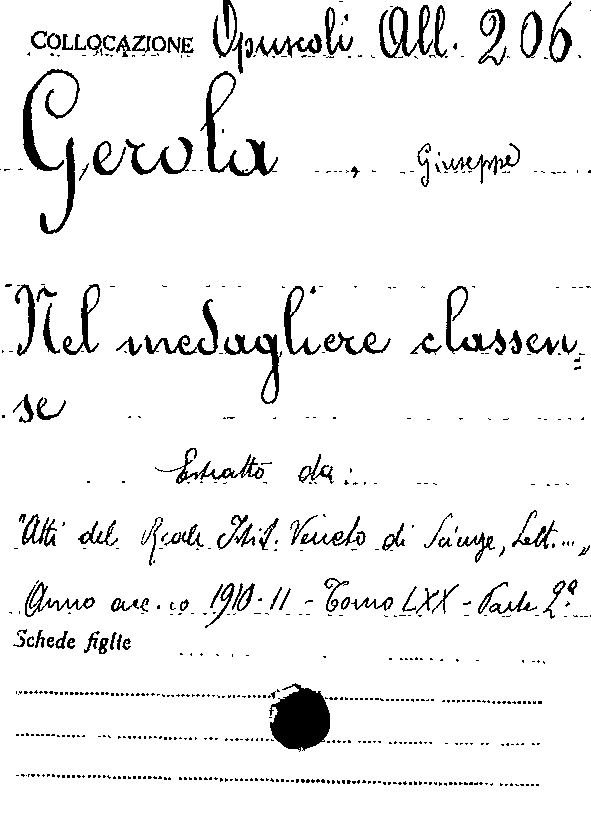 COLLOCAZIONE Opuscoli All. 206
Gerola, Giuseppe
Nel medagliere classen=
se
Estratto da:
"Atti del Reale Istit. Veneto di Scienze, Lett...„
Anno acc.co 1910-11 - Tomo LXX - Parte 2ª
Schede figlie